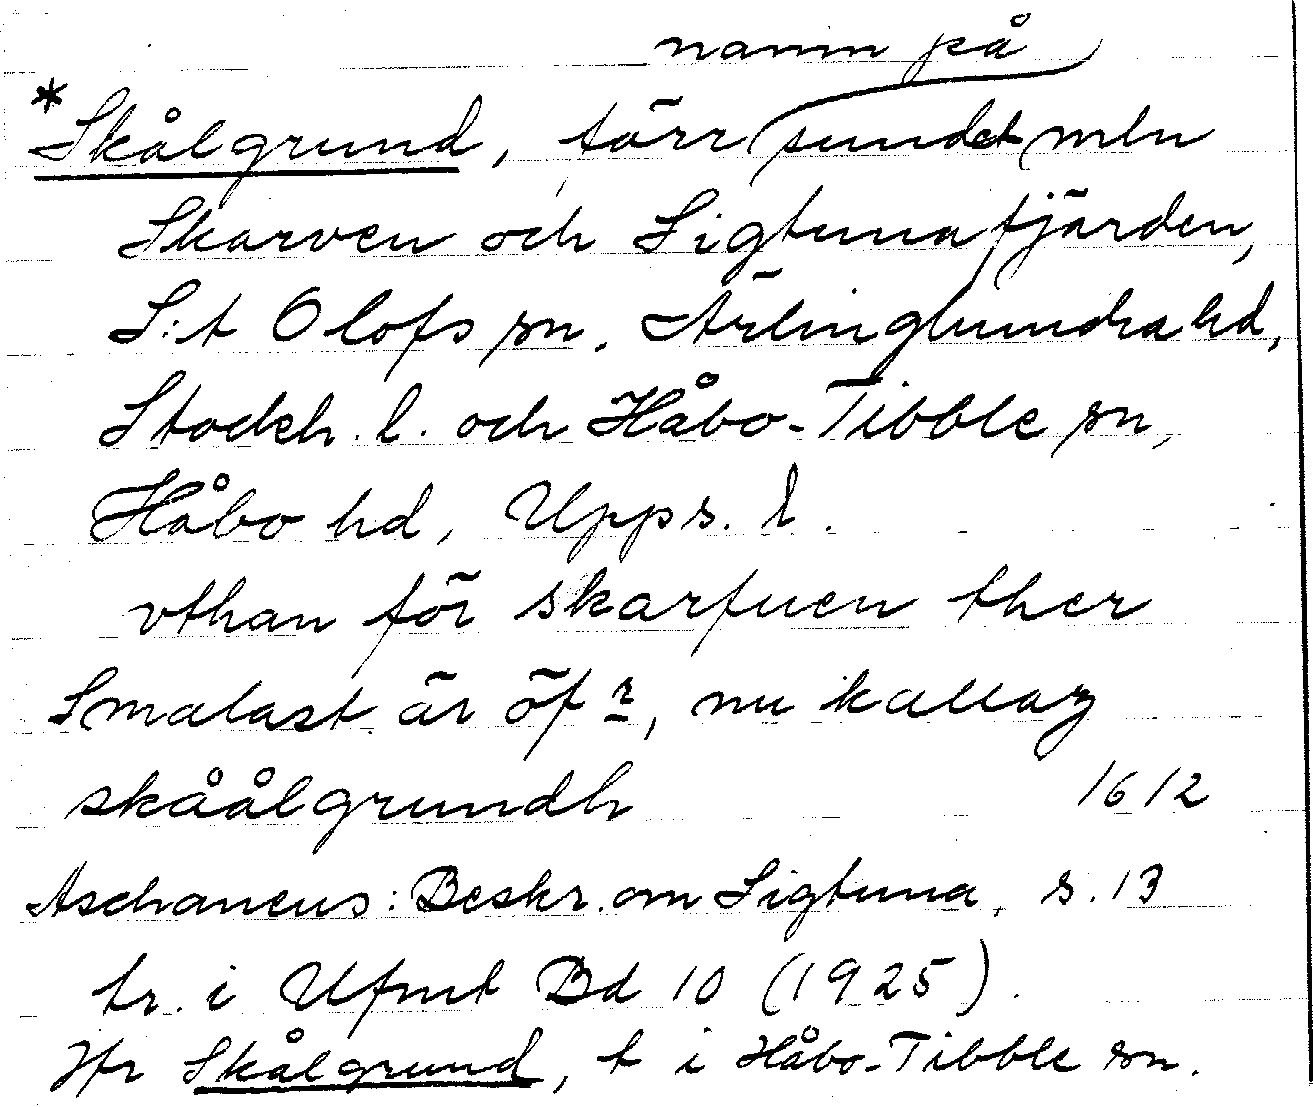 namn på
*Skålgrund, förr sundet mln
Skarven och Sigtunafjärden,
S:t Olofs sn, Ärlinghundra hd,
Stockh. l. och Håbo-Tibble sn,
Håbo hd, Upps. l.
vthan för skarfuen ther
Smalast är öf r, nu kallaz
skåålgrundh 1612
Aschaneus: Beskr. om Sigtuna, s. 13
tr. i Ufmt Bd 10 (1925).
Jfr Skålgrund, t i Håbo-Tibble sn.